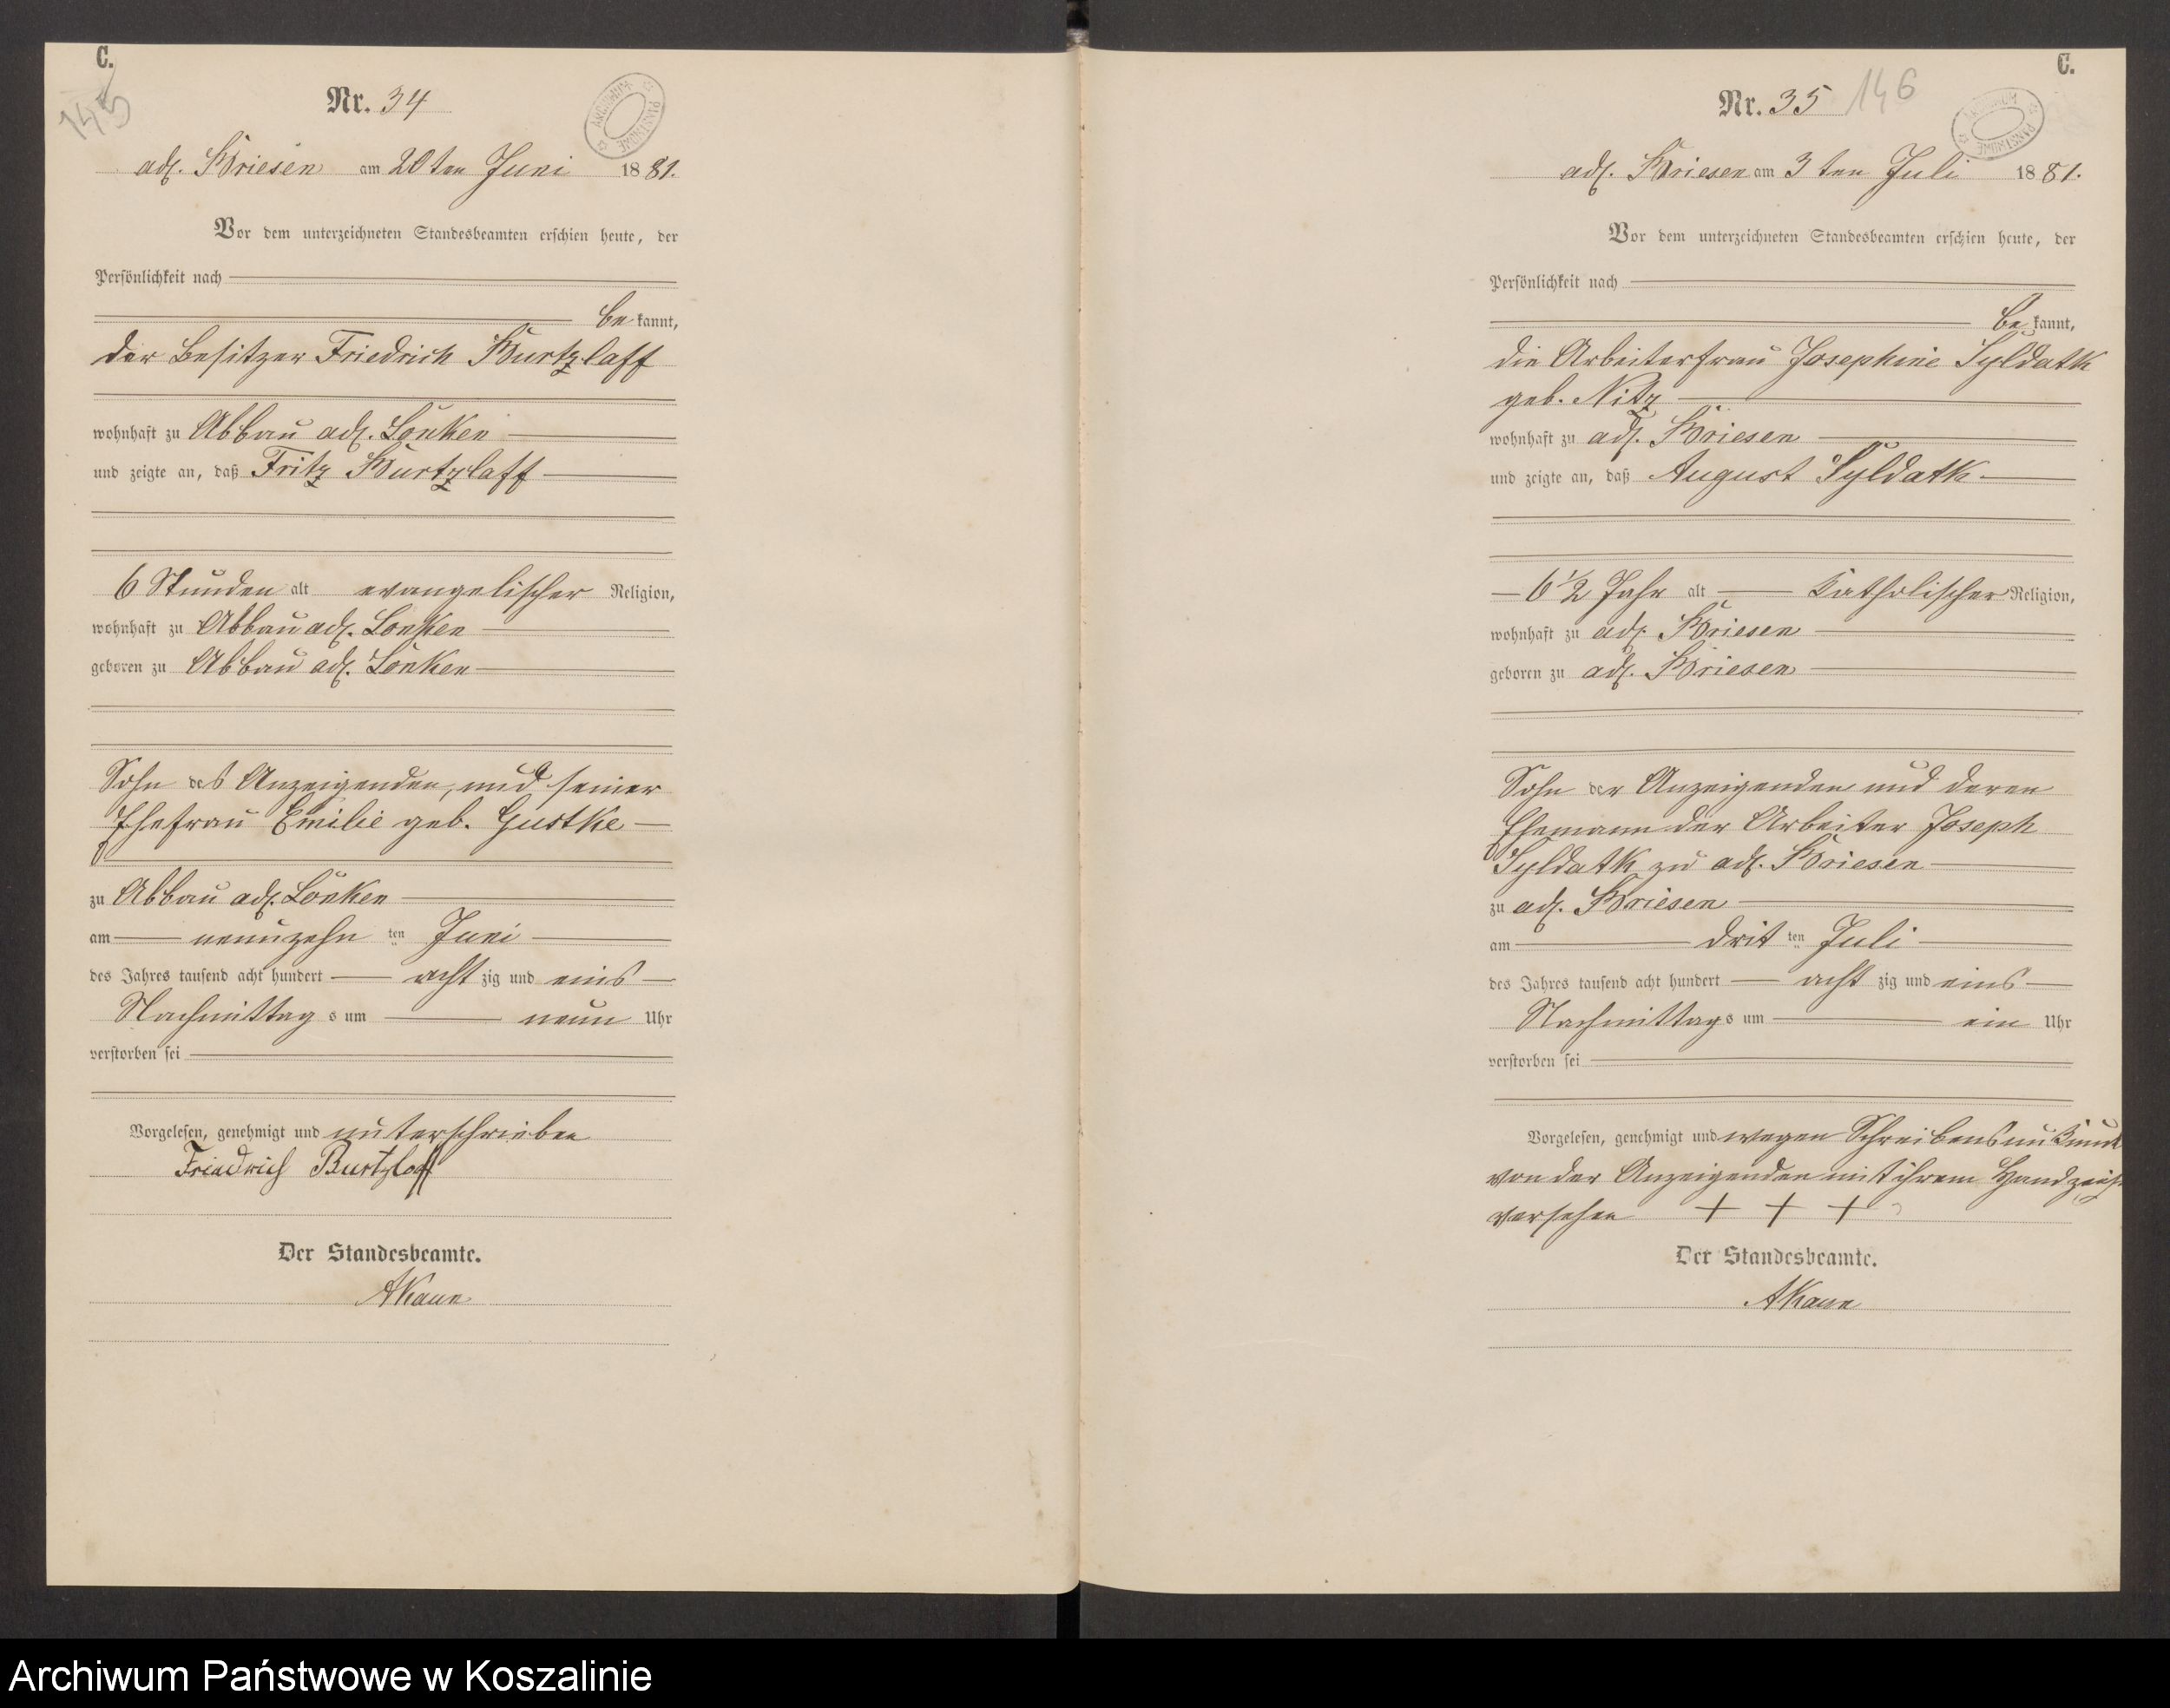 C.
145
Nr. 34
adl. Briesen am 20ten Juni 1881.
Vor dem unterzeichneten Standesbeamten erschien heute, der
Persönlichkeit nach
be kannt,
der Besitzer Friedrich Burtzlaff
wohnhaft zu Abbau adl. Lonken
und zeigte an, daß Fritz Burtzlaff
6 Stunden alt evangelischer Religion,
wohnhaft zu Abbau adl. Lonken
geboren zu Abbau adl. Lonken
Sohn des Anzeigenden, und seiner
Ehefrau Emilie geb. Gustke
zu Abbau adl. Lonken
am neunzehn ten Juni
des Jahres tausend acht hundert acht zig und eins
Nachmittag s um neun Uhr
verstorben sei
Vorgelesen, genehmigt und unterschrieben
Friedrich Burtzlaff
Der Standesbeamte.
AKaun
C.
Nr. 35 146
adl. Briesen am 3ten Juli 1881.
Vor dem unterzeichneten Standesbeamten erschien heute, der
Persönlichkeit nach
be kannt,
die Arbeiterfrau Josephine Syldatk
geb. Nitz
wohnhaft zu adl. Briesen
und zeigte an, daß August Syldatk
6 1/2 Jahr alt Katholischer Religion,
wohnhaft zu adl. Briesen
geboren zu adl. Briesen
Sohn der Anzeigenden und deren
Ehemann der Arbeiter Joseph
Syldatk zu adl. Briesen
zu adl. Briesen
am drit ten Juli
des Jahres tausend acht hundert acht zig und eins
Nachmittags um ein Uhr
verstorben sei
Vorgelesen, genehmigt und wegen Schreibensunkunde
von der Anzeigenden mit ihrem Handzeich
versehen + + +
Der Standesbeamte.
AKaun
Archiwum Państwowe w Koszalinie